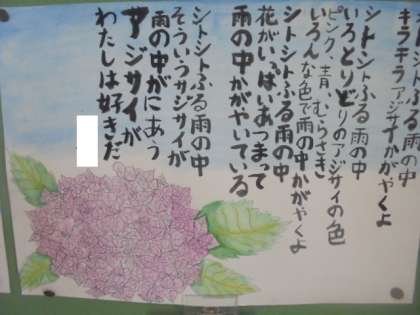 シトシトふる雨の中
キラキラアジサイかがやくよ
シトシトふる雨の中
いろとりどりのアジサイの色
ピンク、青、むらさき
いろんな色で雨の中かがやくよ
シトシトふる雨の中
花がいっぱいあつまって
雨の中かがやいている
シトシトふる雨の中
そういうアジサイが
雨の中がにあう
アジサイが
わたしは好きだ